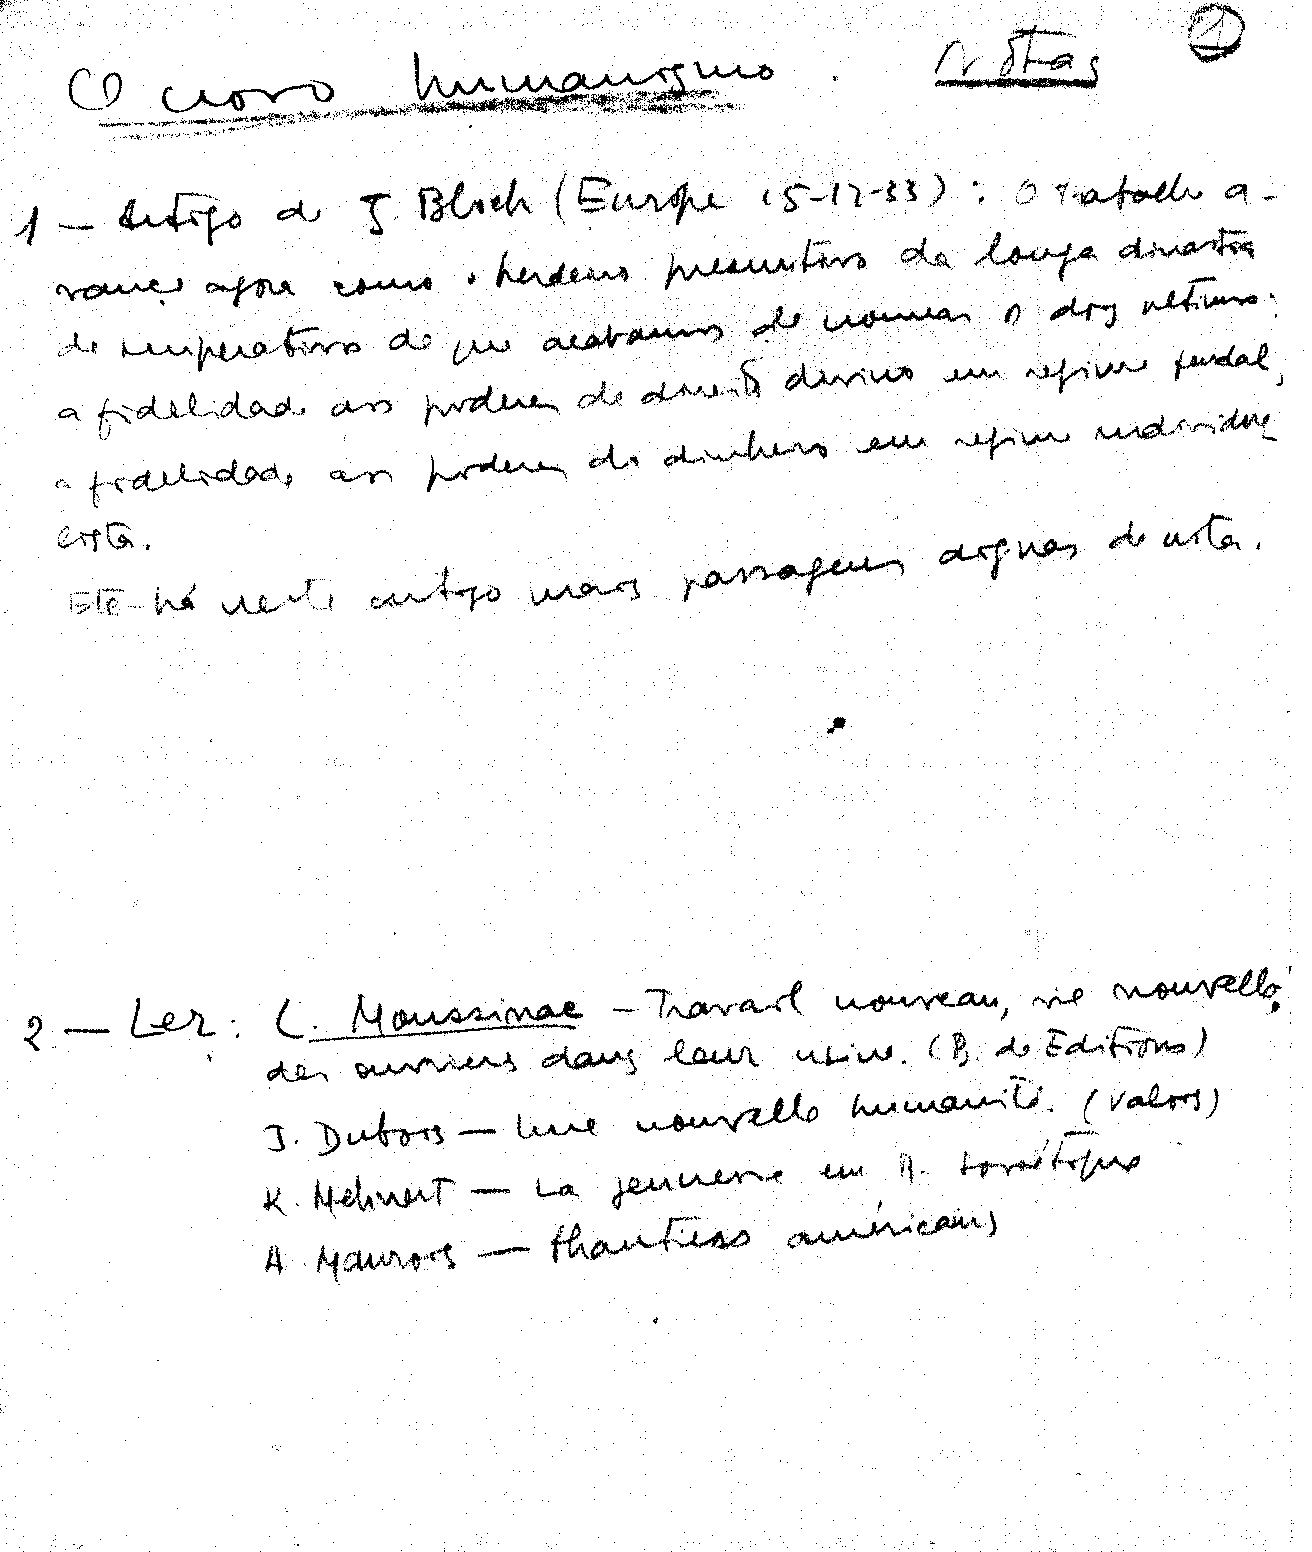 O novo humanismo. Notas 1
1 — Artigo de J. Bloch (Europe 15-12-33): O trabalho a-
vança agora como o herdeiro presuntivo da longa dinastia
de imperativos de que acabamos de nomear os dois ultimos:
a fidelidade aos poderes de direito divino em regime feudal,
a fidelidade aos poderes do dinheiro em regime individua-
lista.
há neste artigo mais passagens dignas de nota.
2 — Ler: L. Moussinac — Travail nouveau, vie nouvelle
des ouvriers dans leur usine. (B. de Editions)
J. Dubois — Une nouvelle humanité. (Valois)
K. Mehnert — La jeunesse en R. soviétique
A Maurois — Chantiers américains